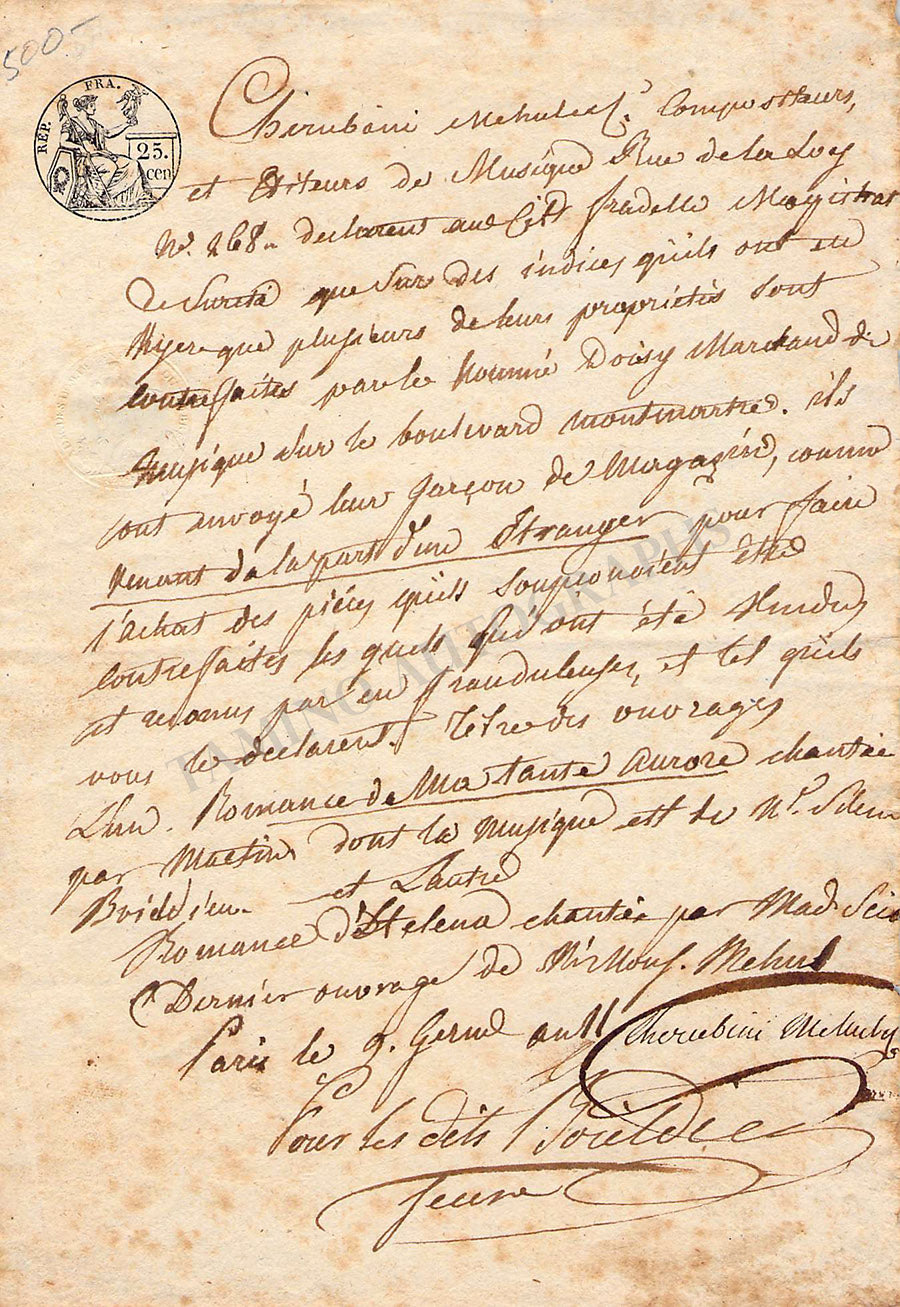 500-
REP. FRA.
25.
cen
Cherubini Mehul et Cie. Compositeurs,
et Editeurs de Musique Rue de la Loy
No. 268. declarent aux Cit. fradelle Magistrat
de Sureté que sur des indices qu'ils ont eu
hyere que plusieurs de leurs proprietés sont
contrefaites par le Nommé Doisy Marchand de
Musique sur le boulevard montmartre. ils
ont envoyé leur garçon de Magazin, comme
venant de la part d'une Etranger pour faire
l'achat des piéces qu'ils soupconoient être
contrefaites les quels qui ont été vendus
et reconus par eu frauduleuses, et tel qu'ils
vous le declarent. Tetre des ouvrages
L'un. Romance de Ma tante Aurore chantée
par Martin dont la Musique est de
Boieldieu et L'autre
Romance d'Helena chantée par Mad. Scio
Dernier ouvrage de Mehul
Paris le 9. Germl an 11
Cherubini Mehul
Pour les dits Boieldieu
jeune
TAMINO AUTOGRAPHS